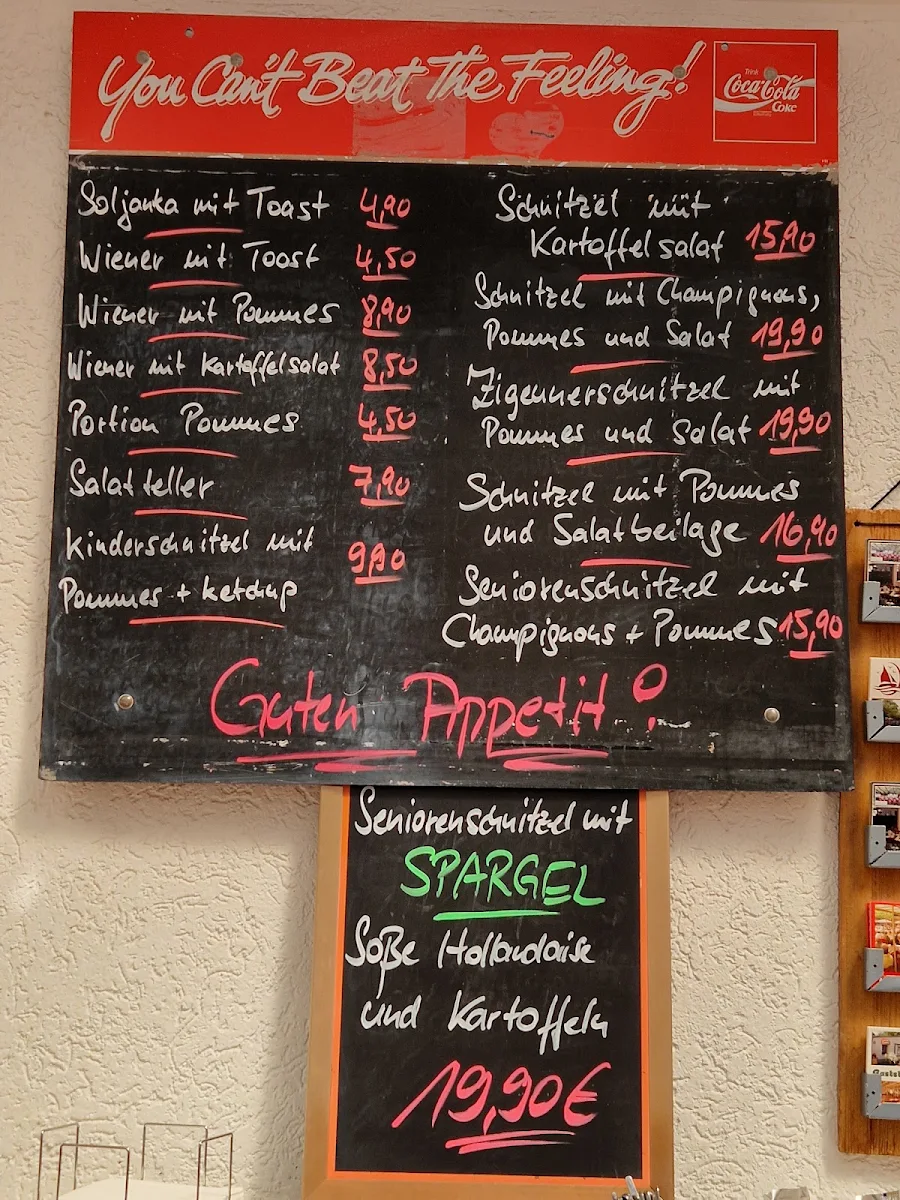 You Can't Beat The Feeling!
Trink
Coca-Cola
Coke
Soljanka mit Toast 4,90
Wiener mit Toast 4,50
Wiener mit Pommes 8,90
Wiener mit Kartoffelsalat 8,50
Portion Pommes 4,50
Salatteller 7,90
Kinderschnitzel mit
Pommes + Ketchup 9,90
Schnitzel mit
Kartoffelsalat 15,90
Schnitzel mit Champignons,
Pommes und Salat 19,90
Zigeunerschnitzel mit
Pommes und Salat 19,90
Schnitzel mit Pommes
und Salatbeilage 16,90
Seniorenschnitzel mit
Champignons + Pommes 15,90
Guten Appetit!
Seniorenschnitzel mit
SPARGEL
Soße Hollandaise
und Kartoffeln
19,90€